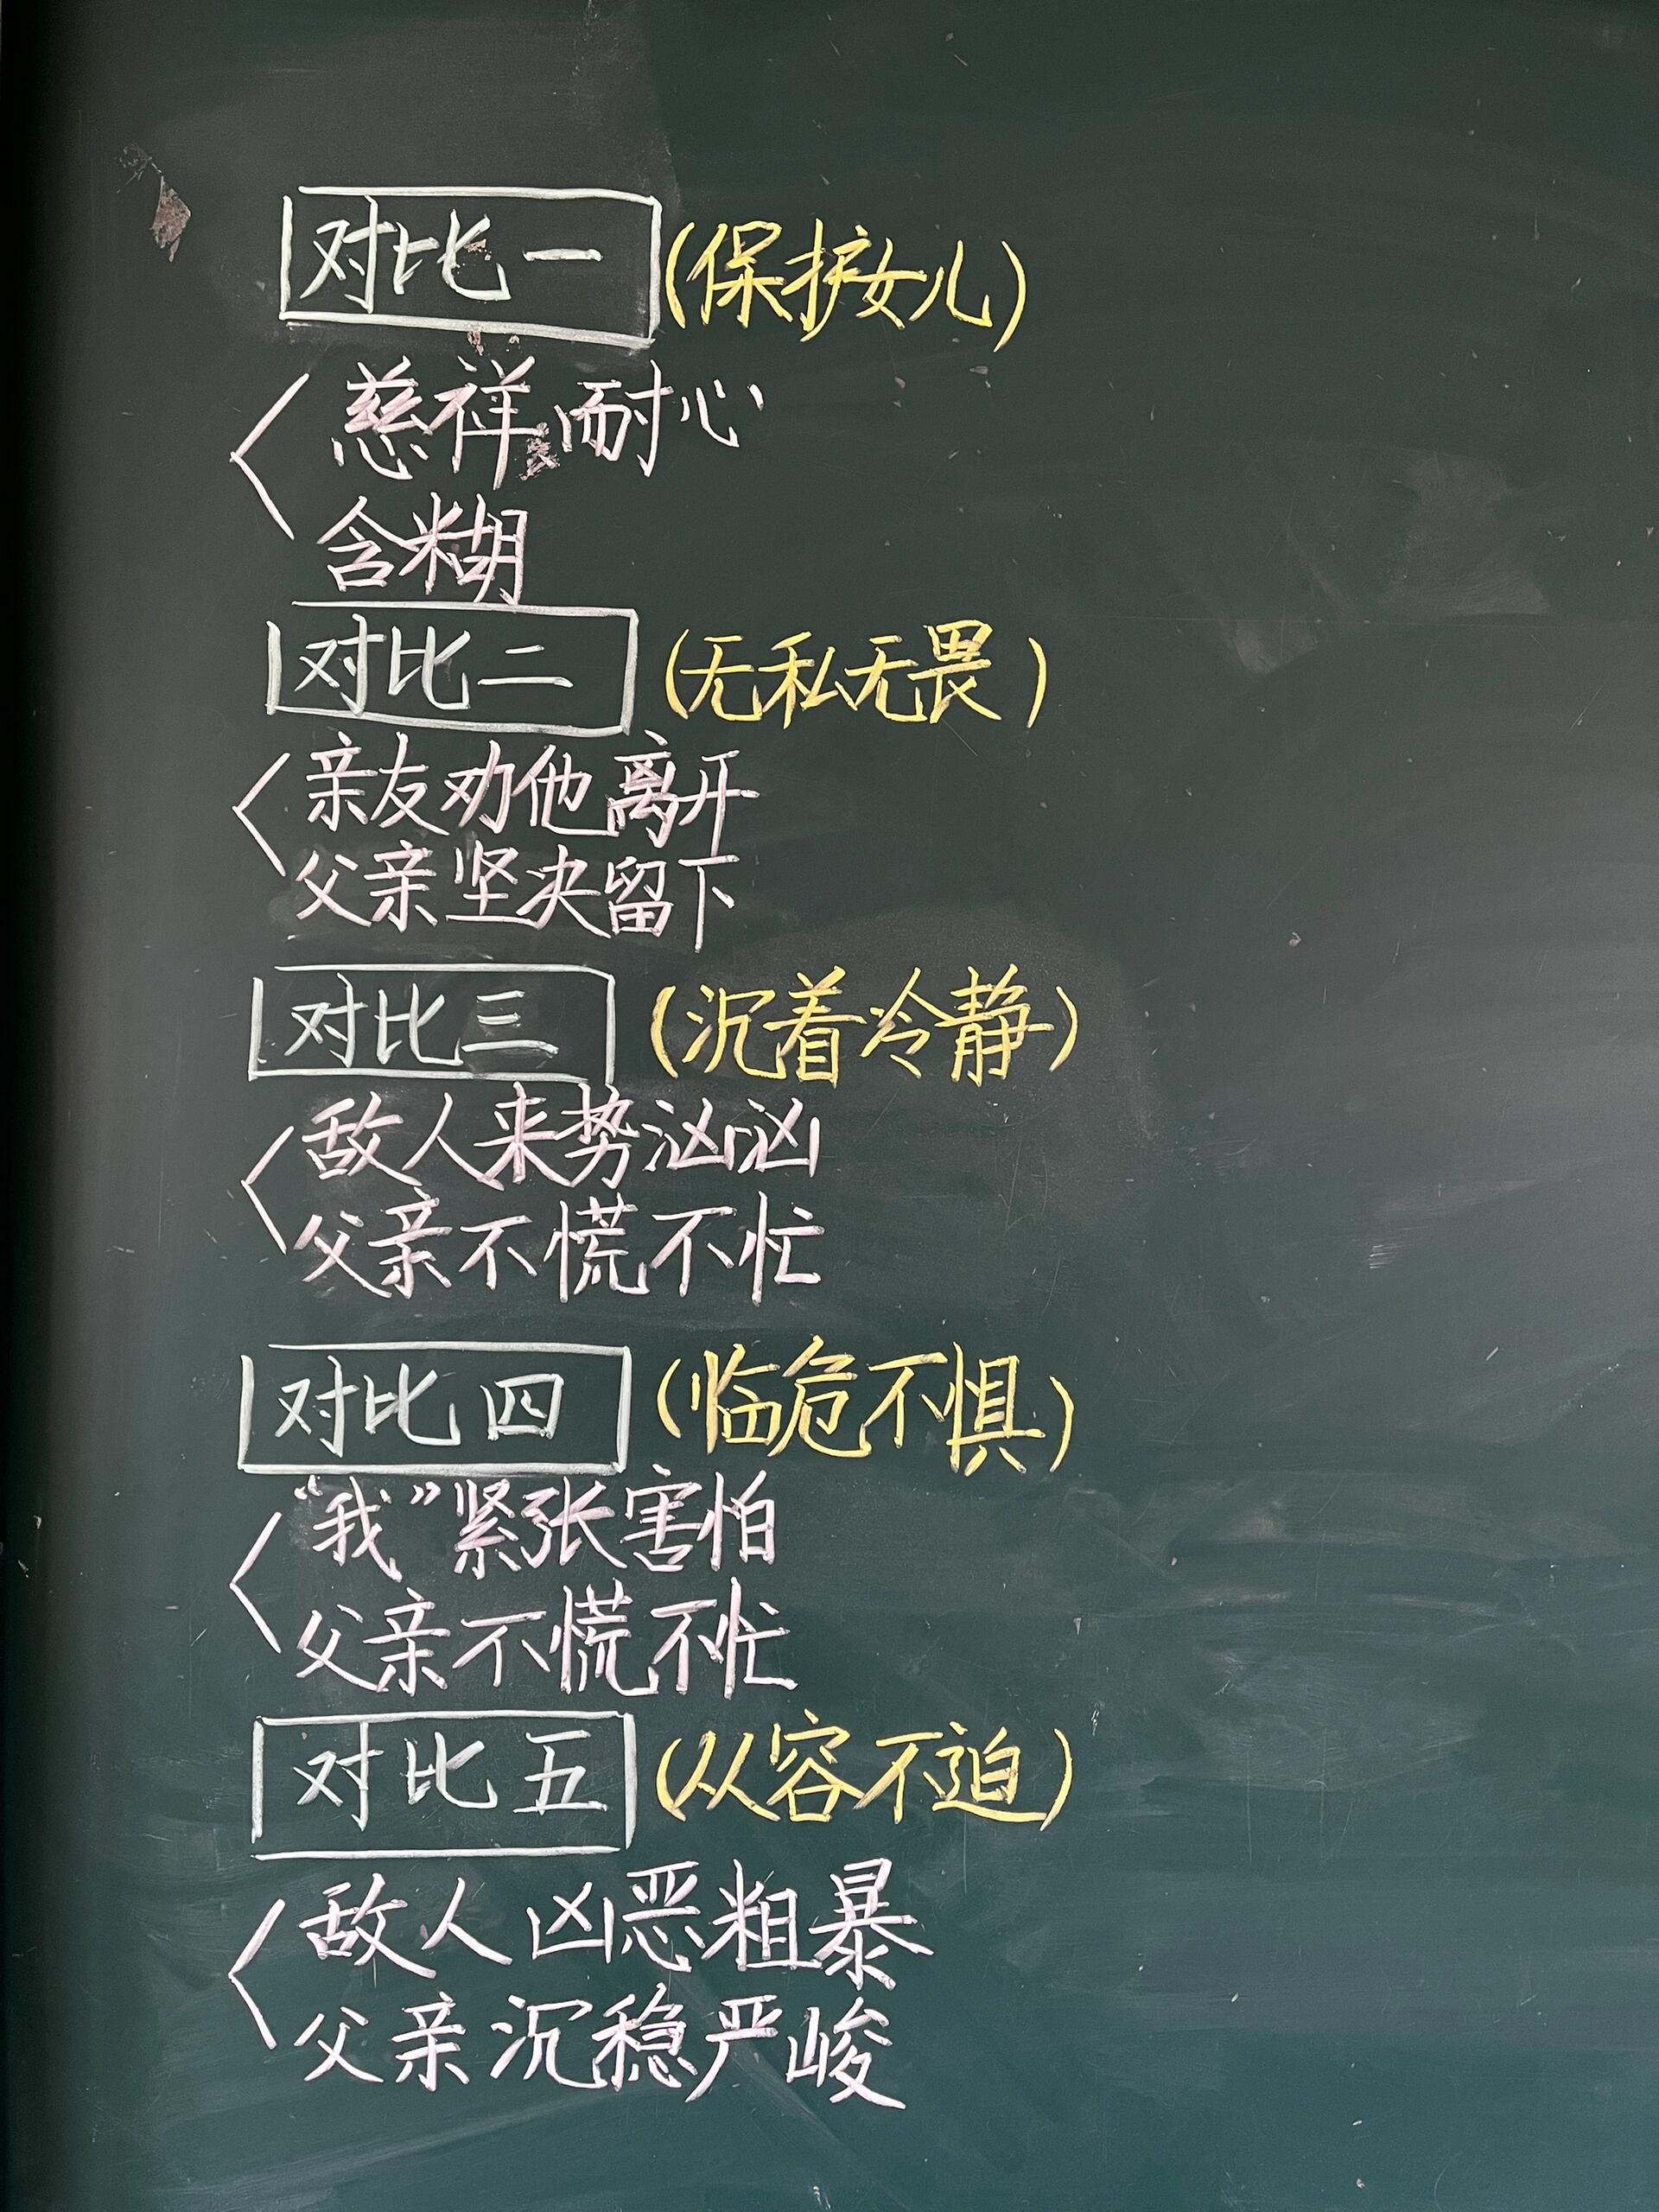 对比一(保护女儿)
慈祥耐心
含糊
对比二(无私无畏)
亲友劝他离开
父亲坚决留下
对比三(沉着冷静)
敌人来势汹汹
父亲不慌不忙
对比四(临危不惧)
“我”紧张害怕
父亲不慌不忙
对比五(从容不迫)
敌人凶恶粗暴
父亲沉稳严峻